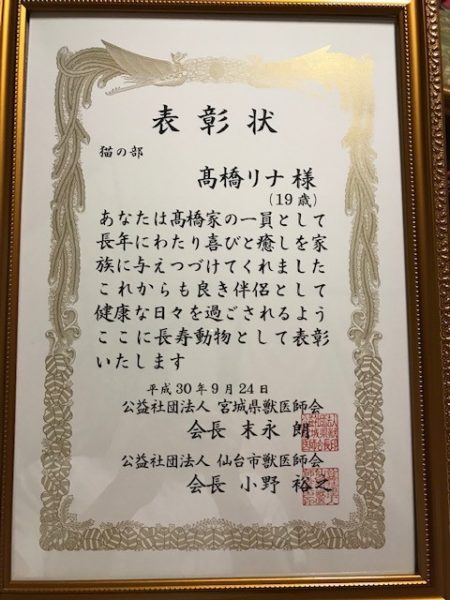 表彰状
猫の部
髙橋リナ様
(19歳)
あなたは髙橋家の一員として
長年にわたり喜びと癒しを家
族に与えつづけてくれました
これからも良き伴侶として
健康な日々を過ごされるよう
ここに長寿動物として表彰
いたします
平成30年9月24日
公益社団法人 宮城県獣医師会
会長 末永 朗
公益社団法人 仙台市獣医師会
会長 小野 裕之